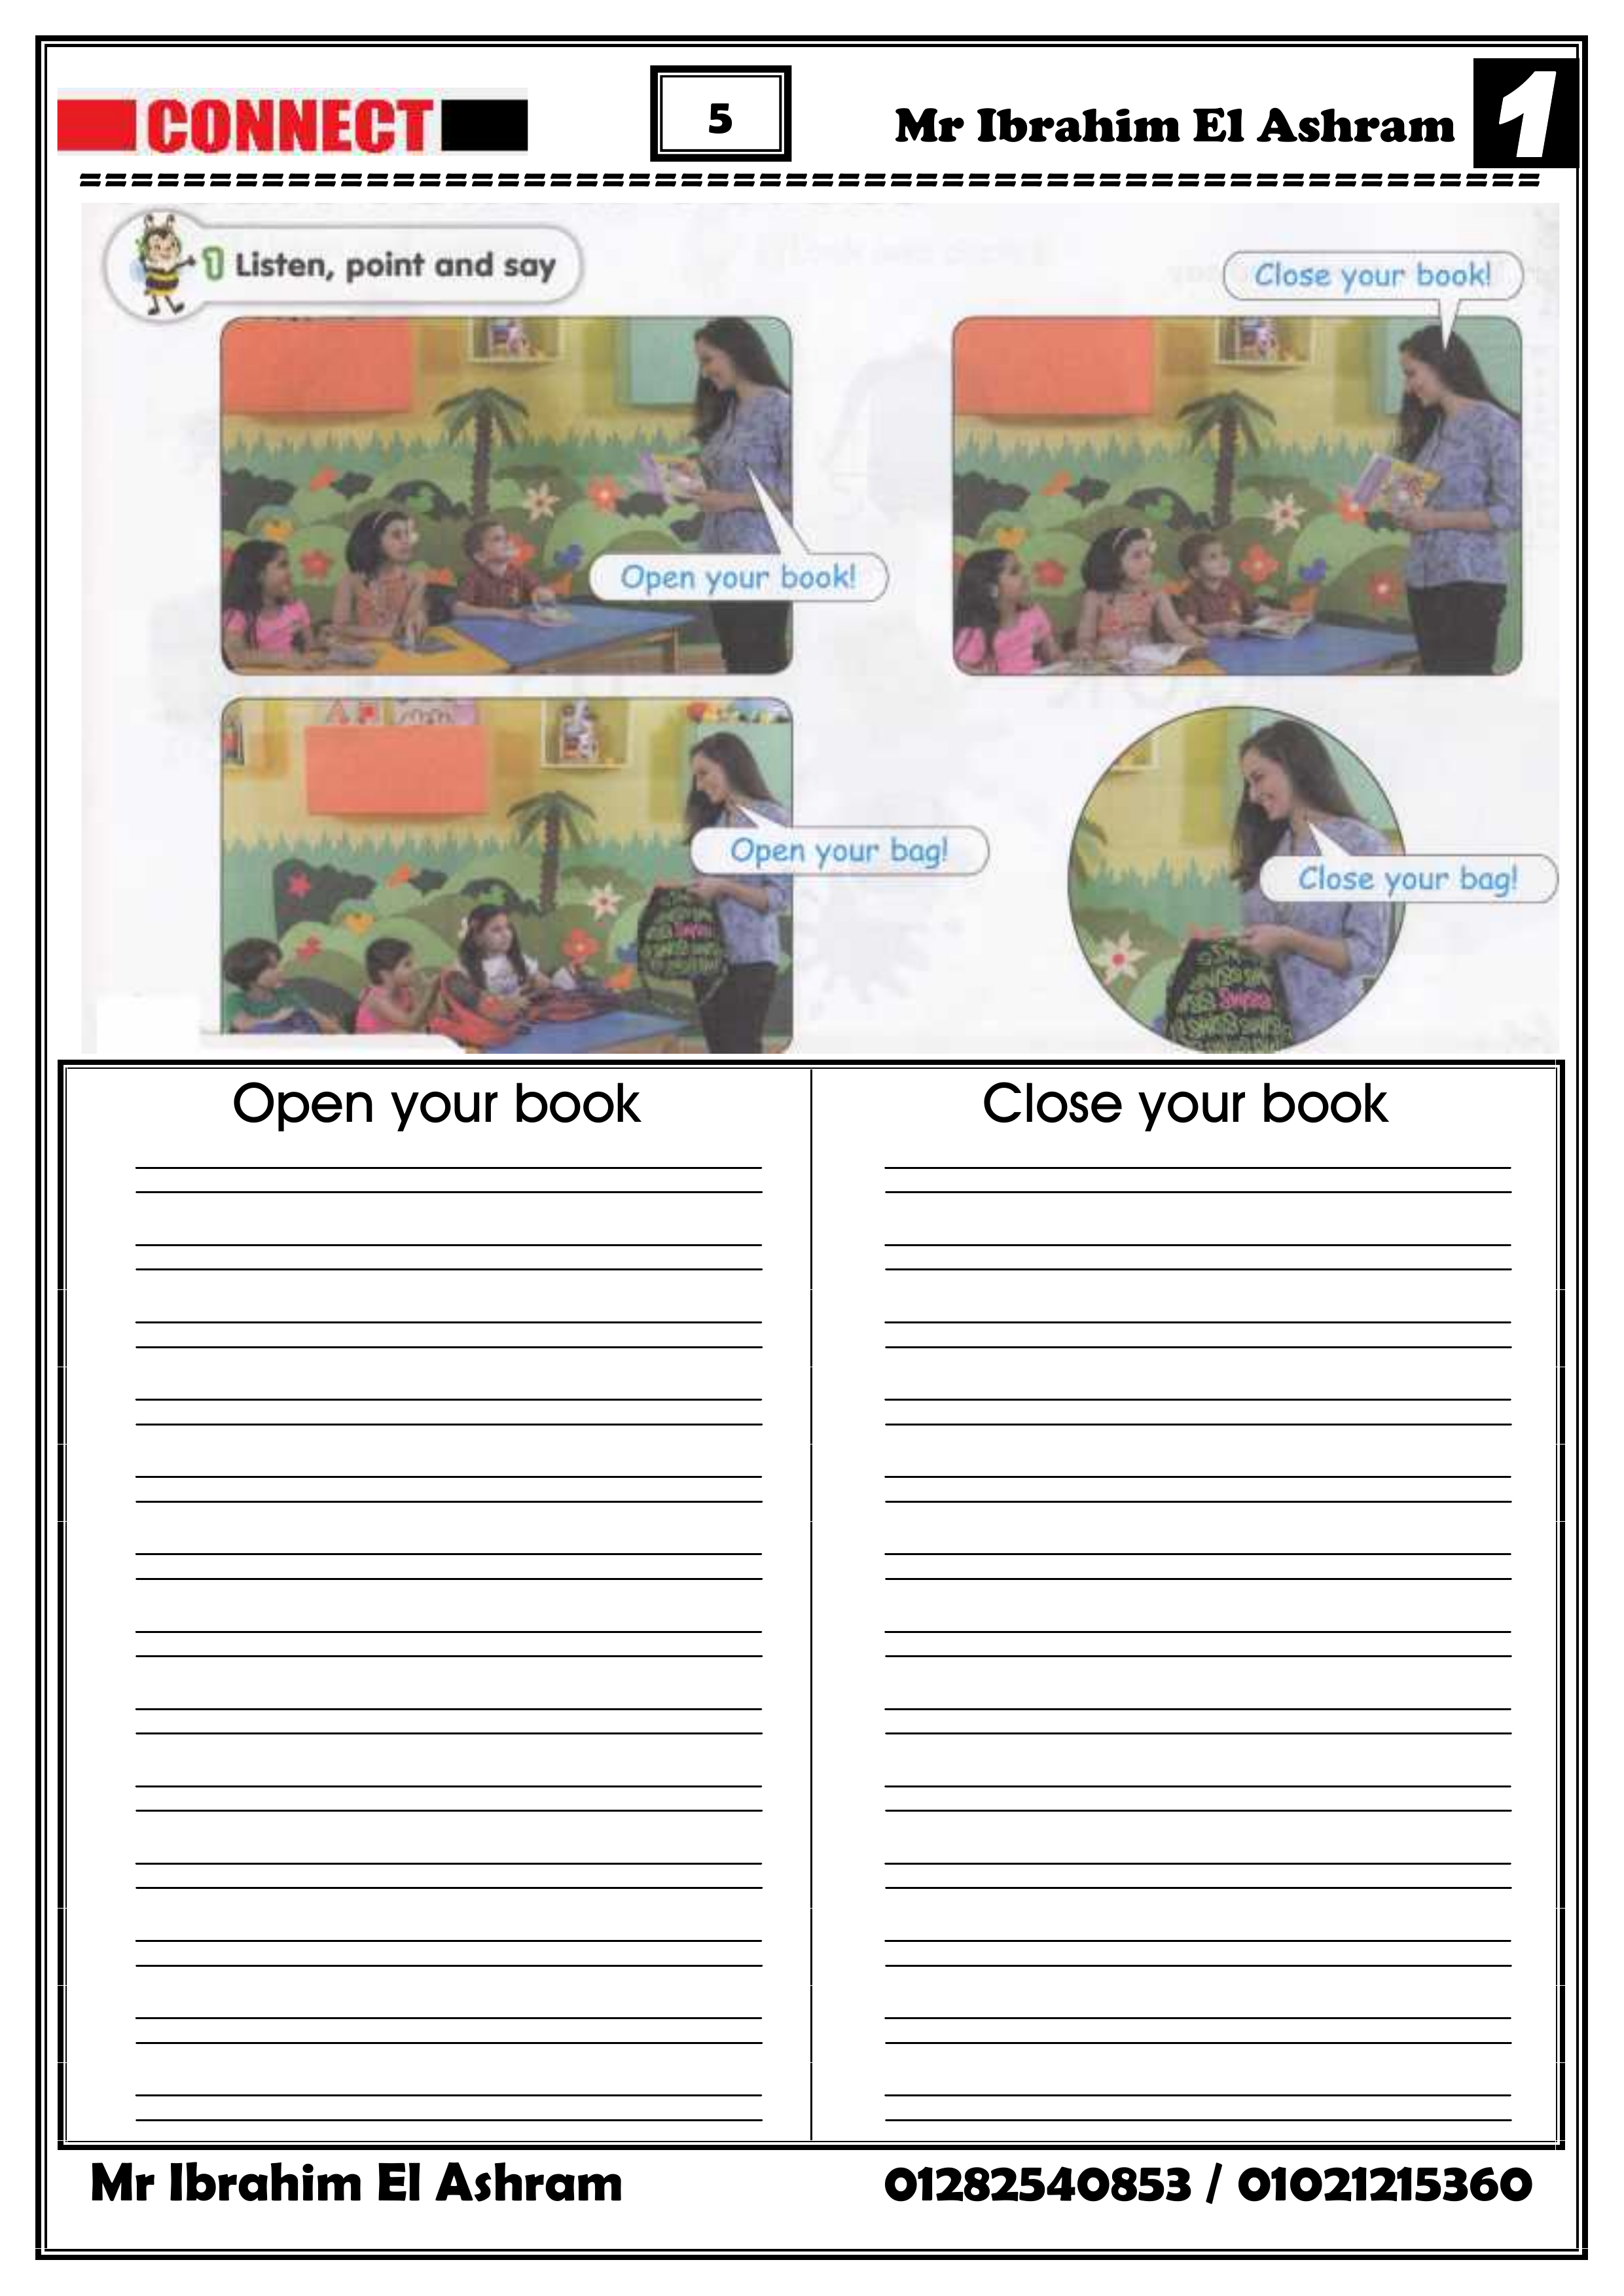 CONNECT
5
Mr Ibrahim El Ashram
1
1 Listen, point and say
Close your book!
Open your book!
Open your bag!
Close your bag!
Open your book
Close your book
Mr Ibrahim El Ashram
01282540853 / 01021215360